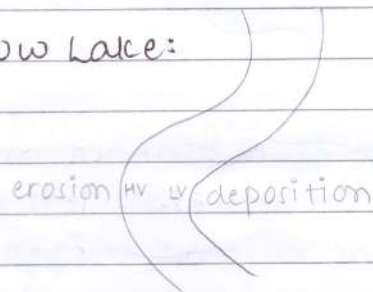 ow Lake:
erosion HV LV deposition